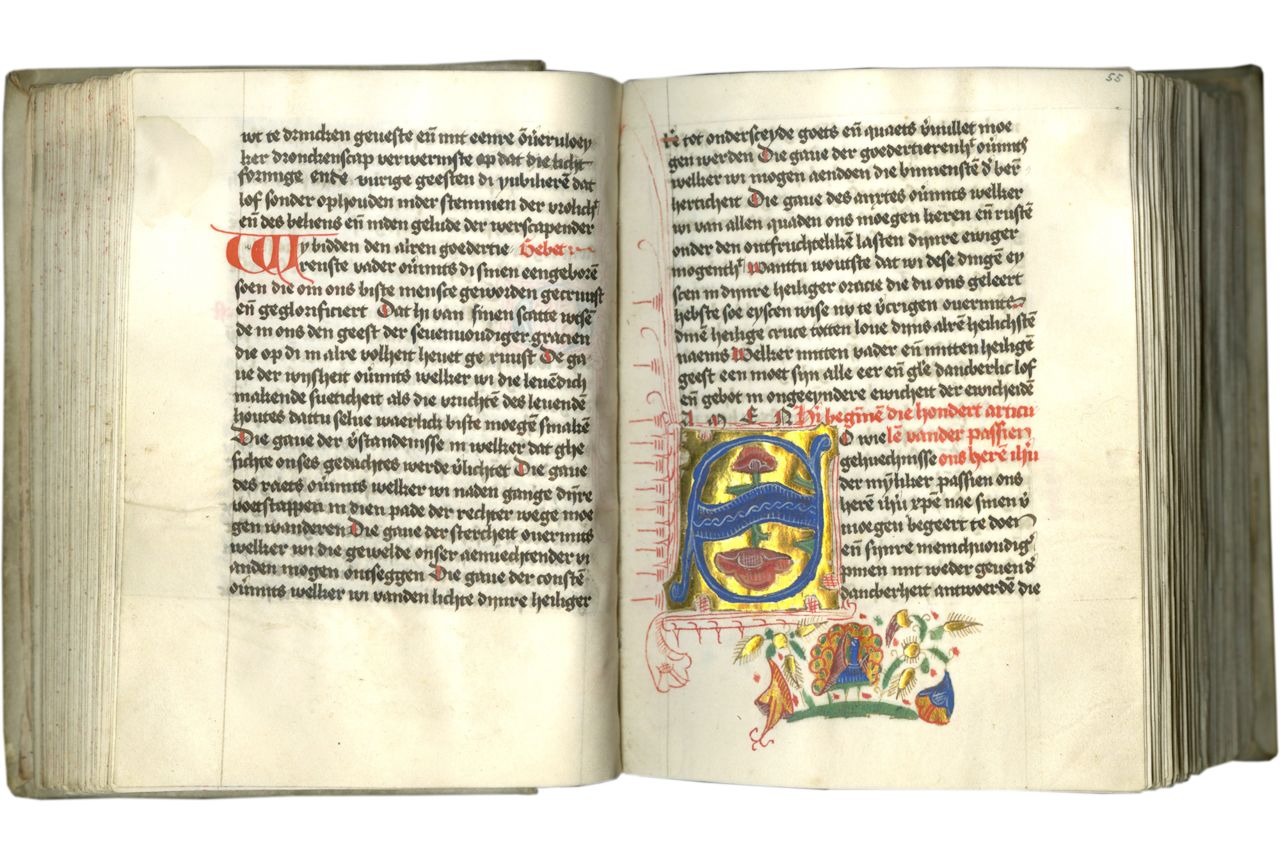 wt te drincken geueste eñ mit eenre ou̓eruloey
ker dronckenscap verwermste op dat die licht
formige ende vurige geesten di yubiliherē dat
lof sonder ophouden inder stemmen der vrolich
eñ des beliens eñ inden gelude der werscapender
Wy bidden den alren goedertie Gebet
renste vader ou̓mits di sinen eengeborē
soen die om ons biste mensce geworden gecruust
eñ geglorificiert Dat hi van sinen scatte wisē
de in ons den geest der seuenuoudiger gracien
die op di in alre volheit heuet ge ruust De ga
ue der wijsheit ou̓mits welker wi die leuēdich
makende sueticheit als die vruchtē des leuendē
houtes dattu selue waerlick biste moegē smakē
Die gaue der v̓standenisse in welker dat ghe
sichte onses gedachtes werde v̓lichtet Die gaue
des raets ou̓mits welker wi naden gange dijnre
voetstappen in dien pade der rechter wege moe
gen wanderen Die gaue der stercheit ouermits
welker wi die gewelde onser aenuechtender vi
anden mogen ontseggen Die gaue der constē
ou̓mits welker wi vanden lichte dijnre heiliger
55
tot ondersceyde goets eñ quaets v̓uullet moe
gen werden Die gaue der goedertierenh̓t ou̓mits
welker wi mogen aendoen die binnenstē d̓ ber̄
herticheit Die gaue des anxtes ou̓mits welker
wi van allen quaden ons moegen keren eñ rustē
onder den ontfruchteliken lasten dijnre ewiger
mogenth̓t Wanttu woutste dat wi dese dingē ey
scen in dijnre heiliger oracie die du ons geleert
hebste soe eyscen wise nv te v̓crigen ouermits
dinē heilige cruce totten loue dijns alrē heilichstē
naems Welker mitten vader eñ mitten heiligē
geest een moet sijn alle eer eñ gl̄e dancberlic lof
eñ gebot in ongeeyndere ewicheit der ewicheidē
A M E N Hi̓ beginē die hondert articu
O wie lē vander passien
gehuechnisse ons herē ih̄u
der mȳliker passien ons
herē ih̄u xp̄e nae sinen v̓
moegen begeert te doen
eñ sijnre menichuoudig̓
mnen mit weder geuen d̓
dancberheit antwoerdē die